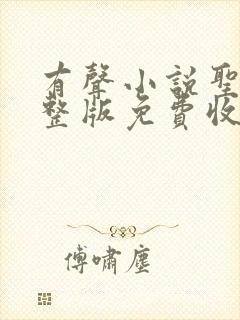 有聲小說聖
整版免費收
傅嘯塵